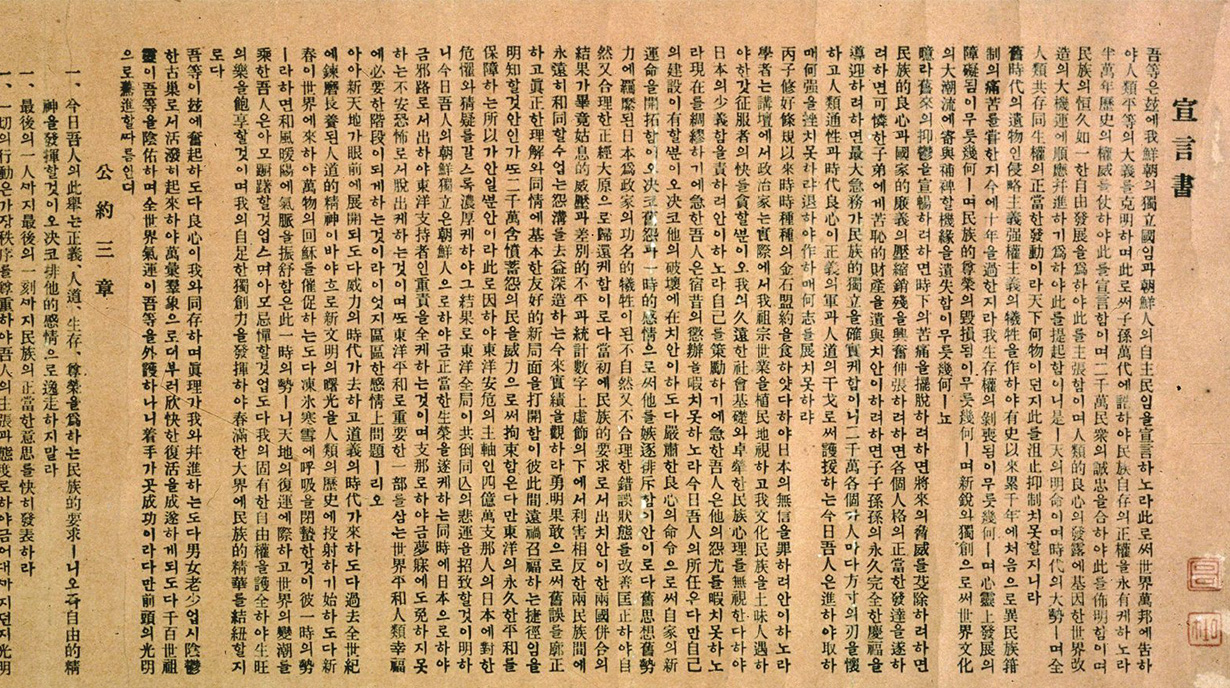 宣言書
吾等은玆에我鮮朝의獨立國임과朝鮮人의自主民임을宣言하노라此로써世界萬邦에告하
야人類平等의大義를克明하며此로써子孫萬代에誥하야民族自存의正權을永有케하노라
半萬年歷史의權威를仗하야此를宣言함이며二千萬民衆의誠忠을合하야此를佈明함이며
民族의恒久如一한自由發展을爲하야此를主張함이며人類的良心의發露에基因한世界改
造의大機運에順應幷進하기爲하야此를提起함이니是ㅣ天의明命이며時代의大勢ㅣ며全
人類共存同生權의正當한發動이라天下何物이던지此를沮止抑制치못할지니라
舊時代의遺物인侵略主義强權主義의犧牲을作하야有史以來累千年에처음으로異民族箝
制의痛苦를嘗한지今에十年을過한지라我生存權의剝喪됨이무릇幾何ㅣ며心靈上發展의
障礙됨이무릇幾何ㅣ며民族的尊榮의毁損됨이무릇幾何ㅣ며新銳와獨創으로써世界文化
의大潮流에寄與補裨할機緣을遺失함이무릇幾何ㅣ뇨
噫라舊來의抑鬱을宣暢하려하면時下의苦痛을擺脫하려하면將來의脅威를芟除하려하면
民族的良心과國家的廉義의壓縮銷殘을興奮伸張하려하면各個人格의正當한發達을遂하
려하면可憐한子弟에게苦恥的財產을遺與치안이하려하면子子孫孫의永久完全한慶福을
導迎하려하면最大急務가民族的獨立을確實케함이니二千萬各個가人마다方寸의刃을懷
하고人類通性과時代良心이正義의軍과人道의干戈로써護援하는今日吾人은進하야取하
매何强을挫치못하랴退하야作하매何志를展치못하랴
丙子修好條規以來時時種種의金石盟約을食하얏다하야日本의無信을罪하려안이하노라
學者는講壇에서政治家는實際에서我祖宗世業을植民地視하고我文化民族을土昧人遇하
야한갓征服者의快를貪할ᄲᅮᆫ이오我의久遠한社會基礎와卓犖한民族心理를無視한다하야
日本의少義함을責하려안이하노라自己를策勵하기에急한吾人은他의怨尤를暇치못하노
라現在를綢繆하기에急한吾人은宿昔의懲辦을暇치못하노라今日吾人의所任은다만自己
의建設이有할ᄲᅮᆫ이오決코他의破壞에在치안이하도다嚴肅한良心의命令으로써自家의新
運命을開拓함이오決코舊怨과一時的感情으로써他를嫉逐排斥함이안이로다舊思想舊勢
力에羈縻된日本爲政家의功名的犧牲이된不自然又不合理한錯誤狀態를改善匡正하야自
然又合理한正經大原으로歸還케함이로다當初에民族的要求로서出치안이한兩國併合의
結果가畢竟姑息的威壓과差別的不平과統計數字上虛飾의下에서利害相反한兩民族間에
永遠히和同할수업는怨溝를去益深造하는今來實績을觀하라勇明果敢으로써舊誤를廓正
하고眞正한理解와同情에基本한友好的新局面을打開함이彼此間遠禍召福하는捷徑임을
明知할것안인가ᄯᅩ二千萬含憤蓄怨의民을威力으로써拘束함은다만東洋의永久한平和를
保障하는所以가안일ᄲᅮᆫ안이라此로因하야東洋安危의主軸인四億萬支那人의日本에對한
危懼와猜疑를갈스록濃厚케하야그結果로東洋全局이共倒同亡의悲運을招致할것이明하
니今日吾人의朝鮮獨立은朝鮮人으로하야금正當한生榮을遂케하는同時에日本으로하야
금邪路로서出하야東洋支持者인重責을全케하는것이며支那로하야금夢寐에도免하지못
하는不安恐怖로서脫出케하는것이며ᄯᅩ東洋平和로重要한一部를삼는世界平和人類幸福
에必要한階段이되게하는것이라이엇지區區한感情上問題ㅣ리오
아아新天地가眼前에展開되도다威力의時代가去하고道義의時代가來하도다過去全世紀
에鍊磨長養된人道的精神이바야흐로新文明의曙光을人類의歷史에投射하기始하도다新
春이世界에來하야萬物의回穌를催促하는도다凍氷寒雪에呼吸을閉蟄한것이彼一時의勢
ㅣ라하면和風暖陽에氣脈을振舒함은此一時의勢ㅣ니天地의復運에際하고世界의變潮를
乘한吾人은아모躊躇할것업스며아모忌憚할것업도다我의固有한自由權을護全하야生旺
의樂을飽享할것이며我의自足한獨創力을發揮하야春滿한大界에民族的精華를結紐할지
로다
吾等이玆에奮起하도다良心이我와同存하며眞理가我와幷進하는도다男女老少업시陰鬱
한古巢로서活潑히起來하야萬彙羣象으로더부러欣快한復活을成遂하게되도다千百世祖
靈이吾等을陰佑하며全世界氣運이吾等을外護하나니着手가곳成功이라다만前頭의光明
으로驀進할ᄯᅡ름인뎌
公約三章
一、今日吾人의此擧는正義、人道、生存、尊榮을爲하는民族的要求ㅣ니오즉自由的精
神을發揮할것이오決코排他的感情으로逸走하지말라
一、最後의一人ᄭᅡ지最後의一刻ᄭᅡ지民族의正當한意思를快히發表하라
一、一切의行動은가장秩序를尊重하야吾人의主張과態度로하야금어대ᄭᅡ지던지光明